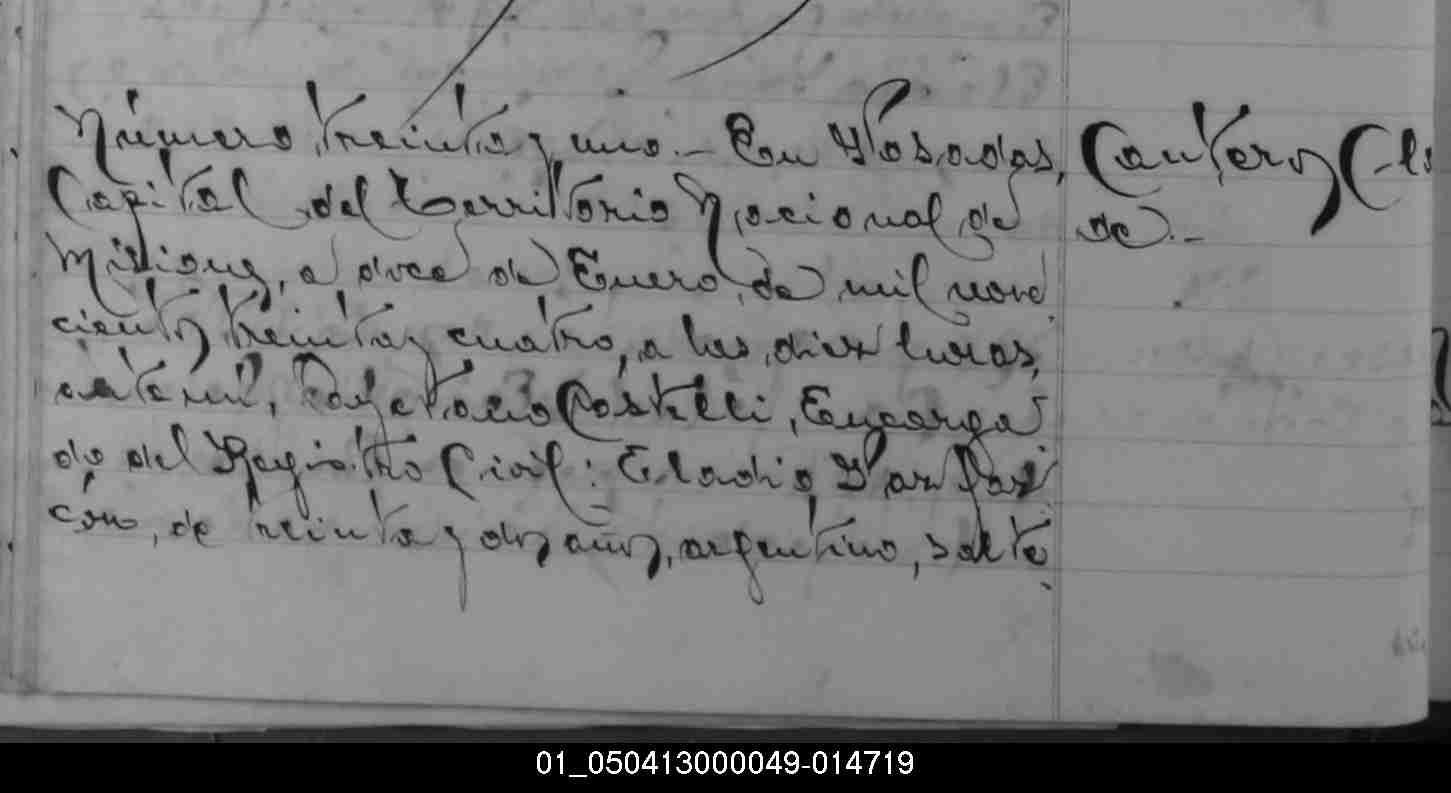 Número treinta y uno.- En Posadas,
Capital del Territorio Nacional de
Misiones, a doce de Enero de mil nove
cientos treinta y cuatro, a las diez horas,
ante mí, Castelli, Encarga
do del Registro Civil: Eladio
de treinta y dos años, argentino, solte
Cantero
de.-
01_050413000049-014719